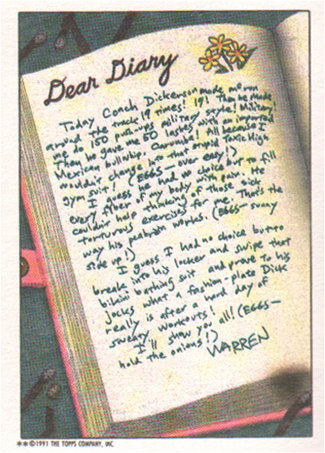 Dear Diary
Today Coach Dickerson made me run
around the track 19 times! 19! Then he made
me do 150 push-ups military style! Military!
Then he gave me 50 lashes with an imported
Mexican bullwhip! Caramba! All because I
wouldn't change into that stupid Toxic High
gym suit! (EGGS— over easy!)
I guess he had no choice but to fill
every fiber of my body with pain. He
couldn't help thinking of those sick
torturous exercises for me. That's the
way his problem works. (EGGS—sunny
side up!)
I guess I had no choice but to
break into his locker and swipe that
bikini bathing suit and prove to his
jocks what a fashion-plate Dick
really is after a hard day of
sweaty workouts!
I'll show you all! (EGGS—
hold the onions!)
WARREN
**©1991 THE TOPPS COMPANY, INC